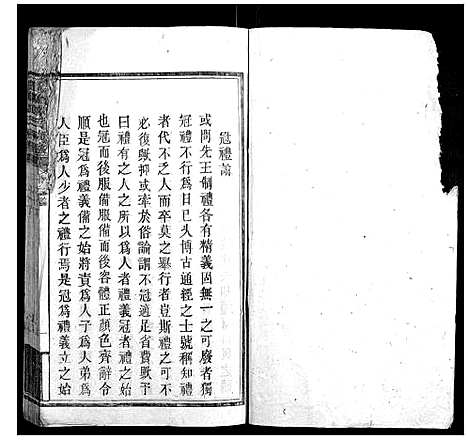 冠禮論
或問先王制禮各有精義固無一之可廢者獨
冠禮不行爲日已久博古通經之士號稱知禮
者代不乏人而卒莫之舉行者豈斯禮之可不
必復歟抑或牽於俗論謂不冠適是省費歟予
曰禮有之人之所以爲人者禮義冠者禮之始
也冠而後服備服備而後容體正顏色齊辭令
順是冠爲禮義備之始將責爲人子爲人弟爲
人臣爲人少者之禮行焉是冠爲禮義立之始